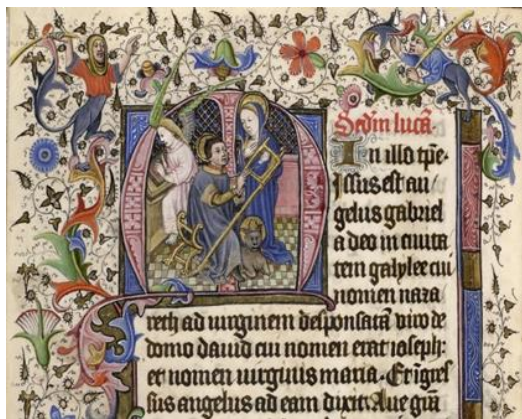 Scdm lucā.
In illo tp̄e.
Missus est an
gelus gabriel
a deo in ciuita
tem galylee cui
nomen naza
reth ad uirginem desponsatā viro de
domo dauid cui nomen erat ioseph:
et nomen uirginis maria. Et īgres
sus angelus ad eam dixit. Aue grā